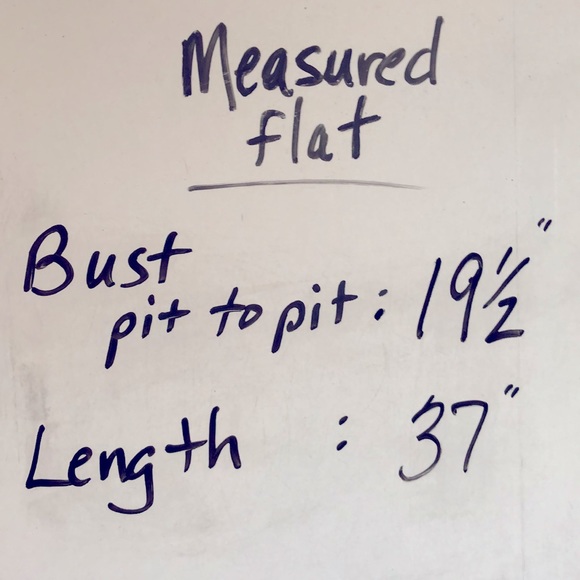 Measured
flat
Bust
pit to pit : 19½"
Length : 37"